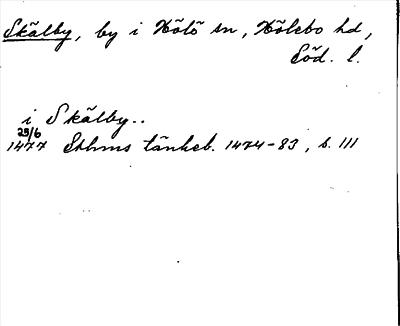 Skälby, by i Hölö sn, Hölebo hd,
Söd. l.
i Skälby..
29/6
1477 Sthms tänkeb. 1474-83, s. 111